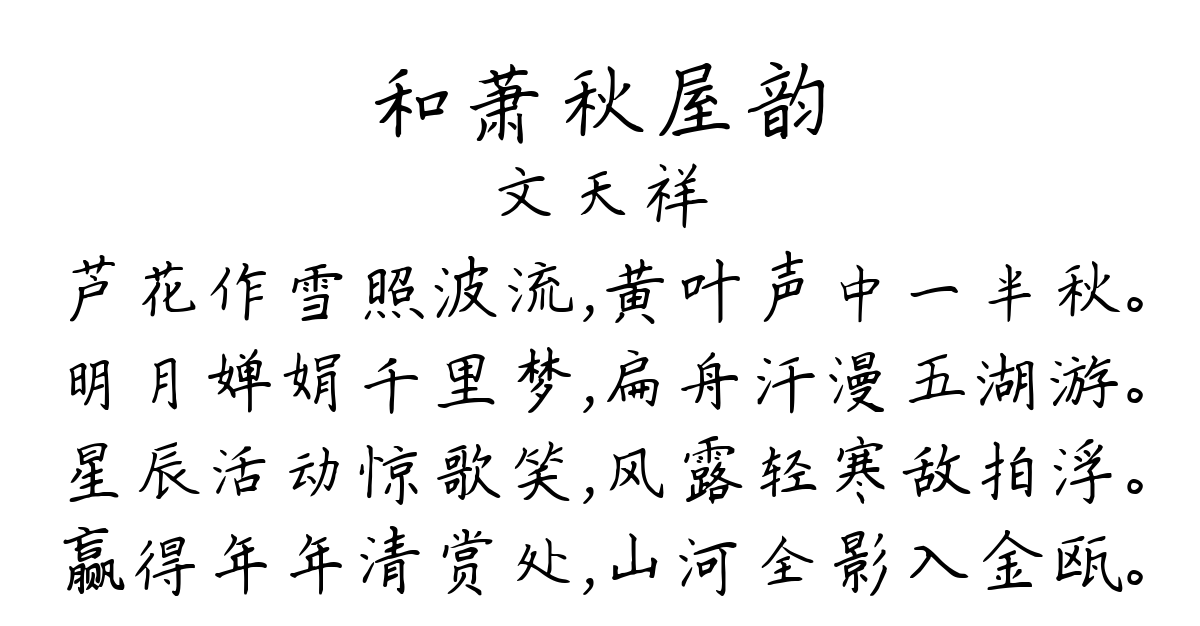 和萧秋屋韵
文天祥
芦花作雪照波流,黄叶声中一半秋。
明月婵娟千里梦,扁舟汗漫五湖游。
星辰活动惊歌笑,风露轻寒敌拍浮。
赢得年年清赏处,山河全影入金瓯。